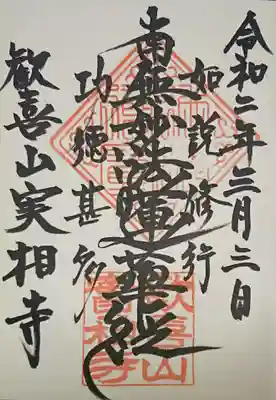 令和二年三月三日
如説修行
南無妙法蓮華経
功徳甚多
歡喜山実相寺
歡喜山
實相寺